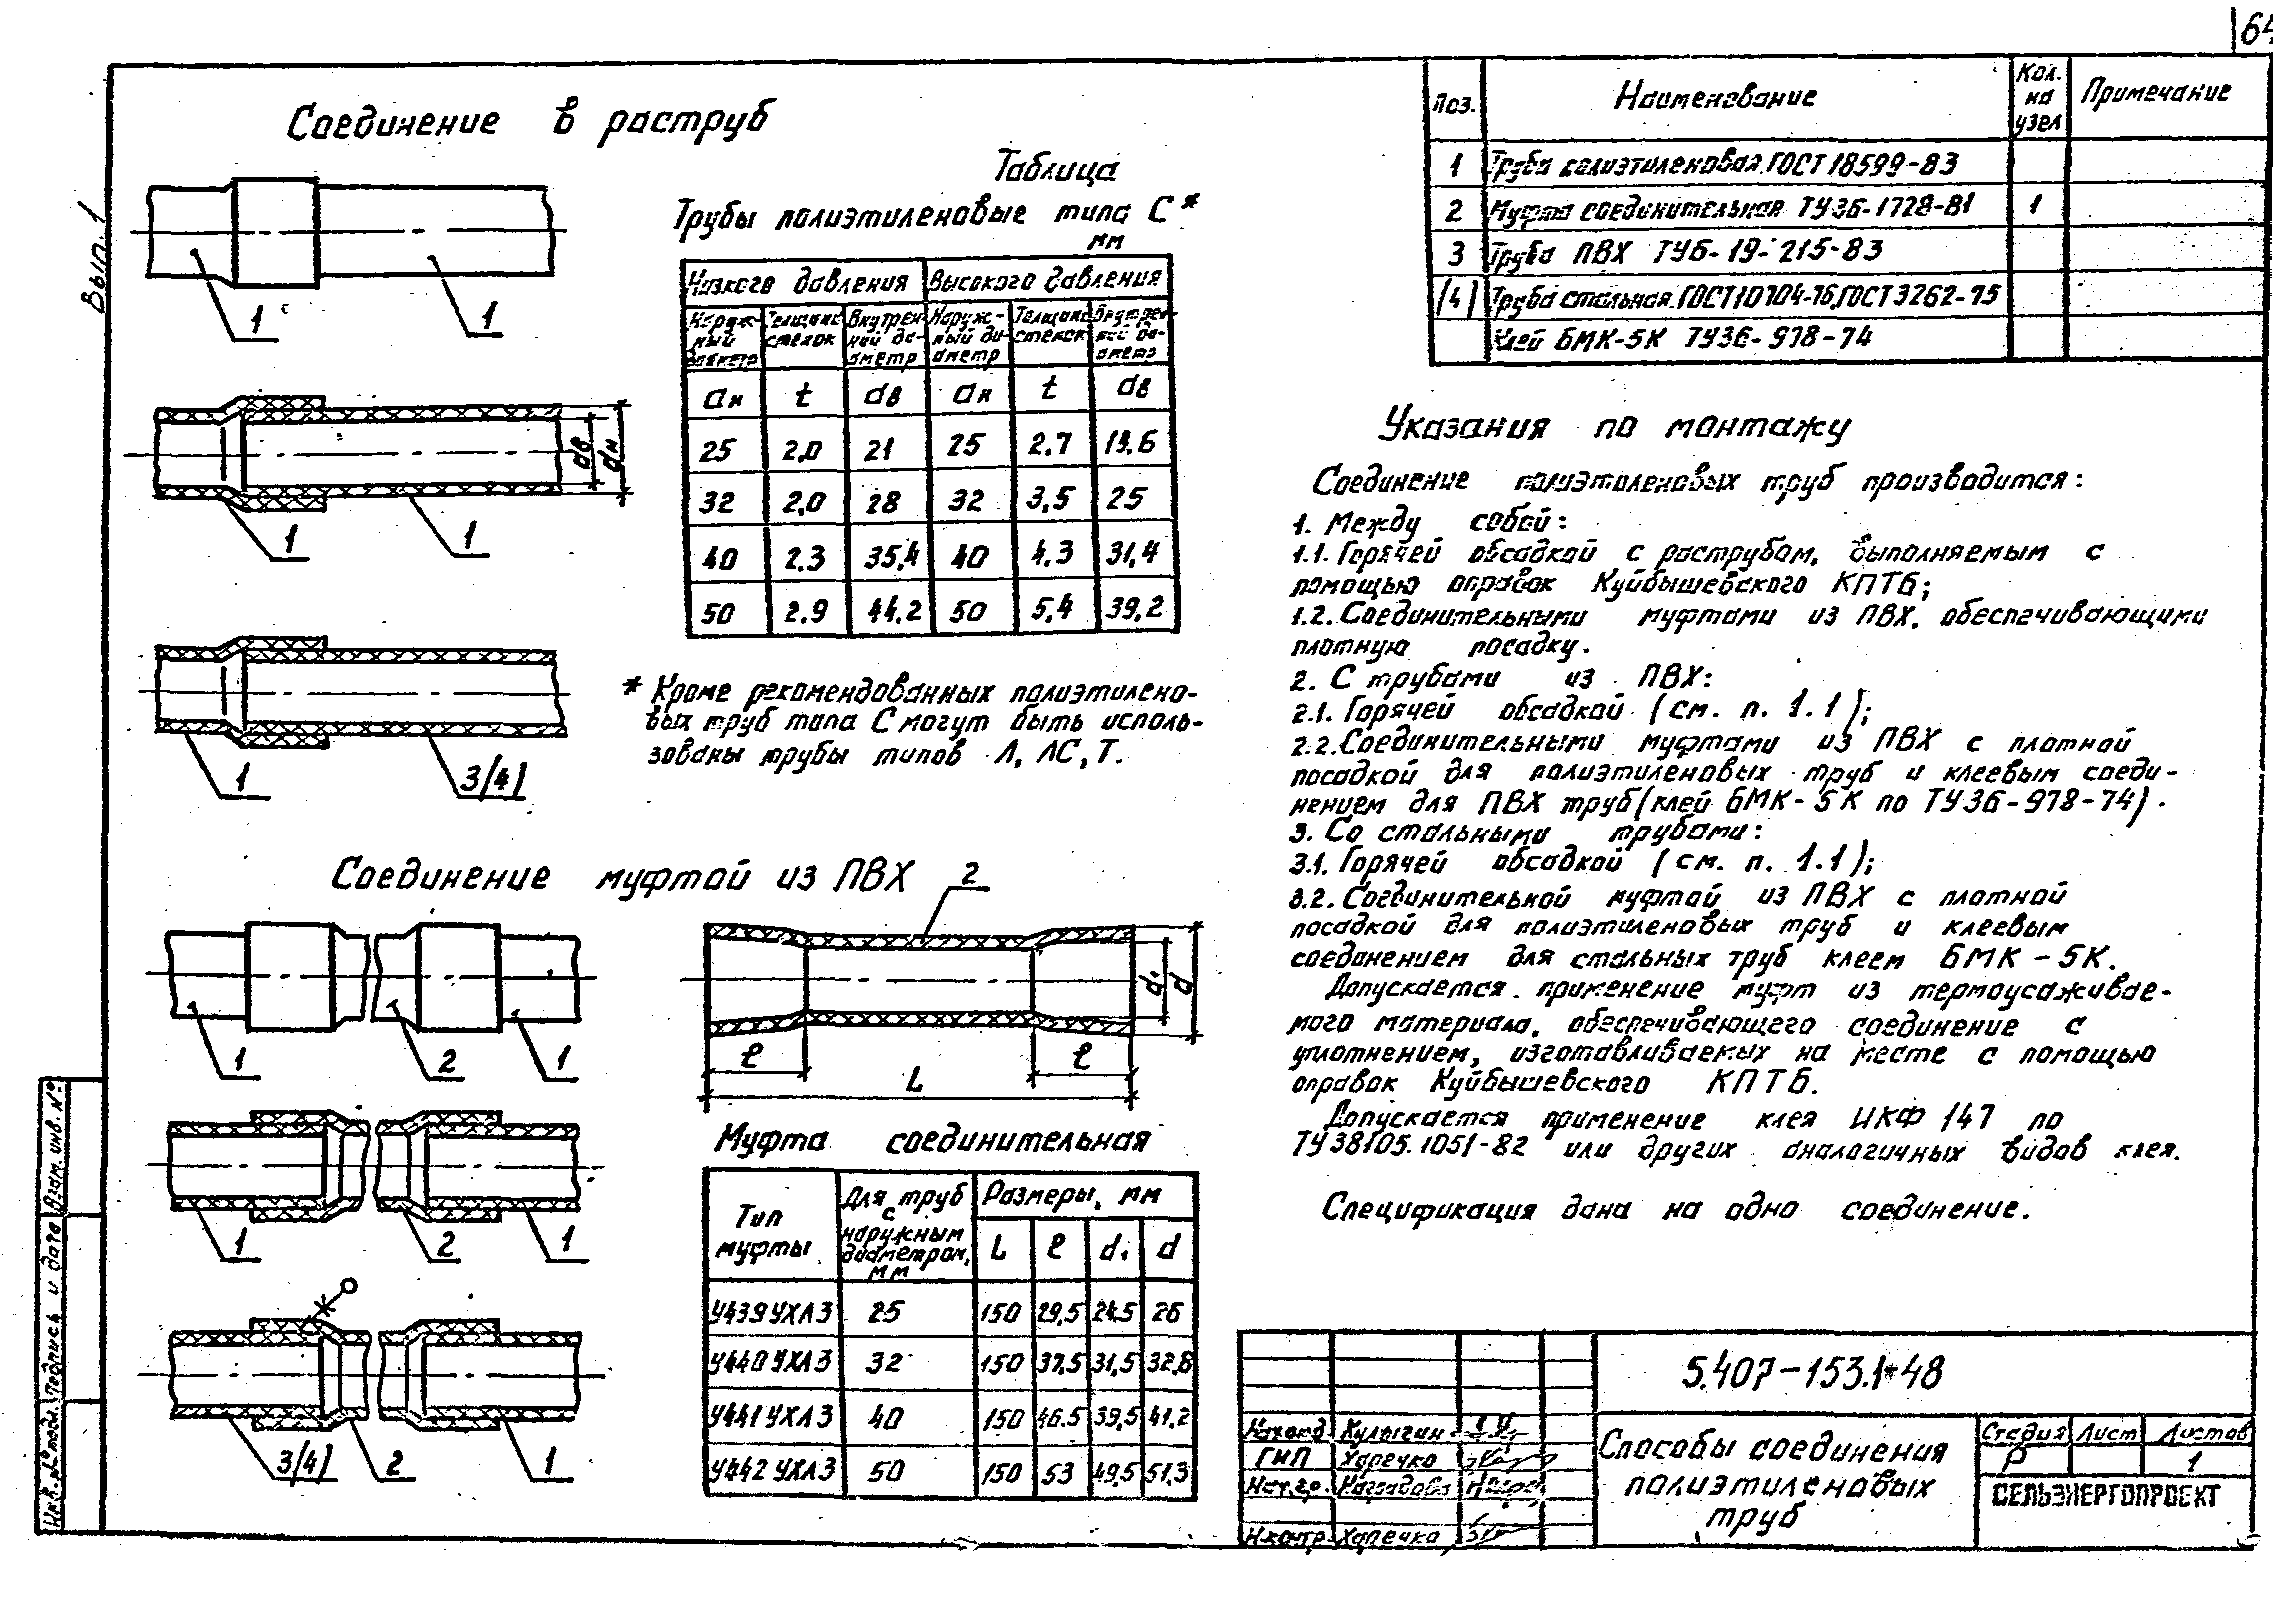 64
Вып. 1
Соединение в раструб
1
1
1
1
dв
dн
1
3(4)
Таблица
Трубы полиэтиленовые типа С*
мм
Низкого давления Высокого давления
Наруж- Толщина Внутрен- Наруж- Толщина Внутрен-
ный стенок ний ди- ный ди- стенок ний ди-
диаметр аметр аметр аметр
dн t dв dн t dв
25 2,0 21 25 2.7 19.6
32 2,0 28 32 3,5 25
40 2.3 35,4 40 4.3 31,4
50 2.9 44.2 50 5,4 39,2
* Кроме рекомендованных полиэтилено-
вых труб типа С могут быть исполь-
зованы трубы типов Л, ЛС, Т.
Соединение муфтой из ПВХ
1
2
1
1
2
1
3(4)
2
1
2
d₁
d
ℓ
ℓ
L
Муфта соединительная
Тип муфты
Для труб с наружным диаметром, мм
Размеры, мм
L ℓ d₁ d
У439 УХЛ3 25 150 29,5 24.5 26
У440 УХЛ3 32 150 37.5 31,5 32,8
У441 УХЛ3 40 150 46.5 39,5 41,2
У442 УХЛ3 50 150 53 49,5 51,3
Поз. Наименование Кол. на узел Примечание
1 Труба полиэтиленовая ГОСТ 18599-83
2 Муфта соединительная ТУ36-1728-81 1
3 Труба ПВХ ТУ6-19-215-83
(4) Труба стальная ГОСТ10704-76, ГОСТ3262-75
Клей БМК-5К ТУ36-978-74
Указания по монтажу
Соединение полиэтиленовых труб производится:
1. Между собой:
1.1. Горячей обсадкой с раструбом, выполняемым с
помощью оправок Куйбышевского КПТБ;
1.2. Соединительными муфтами из ПВХ, обеспечивающими
плотную посадку.
2. С трубами из ПВХ:
2.1. Горячей обсадкой (см. п. 1.1);
2.2. Соединительными муфтами из ПВХ с плотной
посадкой для полиэтиленовых труб и клеевым соеди-
нением для ПВХ труб (клей БМК-5К по ТУ36-978-74).
3. Со стальными трубами:
3.1. Горячей обсадкой (см. п. 1.1);
3.2. Соединительной муфтой из ПВХ с плотной
посадкой для полиэтиленовых труб и клеевым
соединением для стальных труб клеем БМК-5К.
Допускается применение муфт из термоусаживае-
мого материала, обеспечивающего соединение с
уплотнением, изготавливаемых на месте с помощью
оправок Куйбышевского КПТБ.
Допускается применение клея ЦКФ 147 по
ТУ38105.1051-82 или других аналогичных видов клея.
Спецификация дана на одно соединение.
5.407-153.1-48
Кулыгин
ГИП Харечко
Н.контр. Харечко
Способы соединения
полиэтиленовых
труб
Стадия Лист Листов
Р 1
СЕЛЬЭНЕРГОПРОЕКТ
Взам. инв. №
Подпись и дата
Инв. № подл.